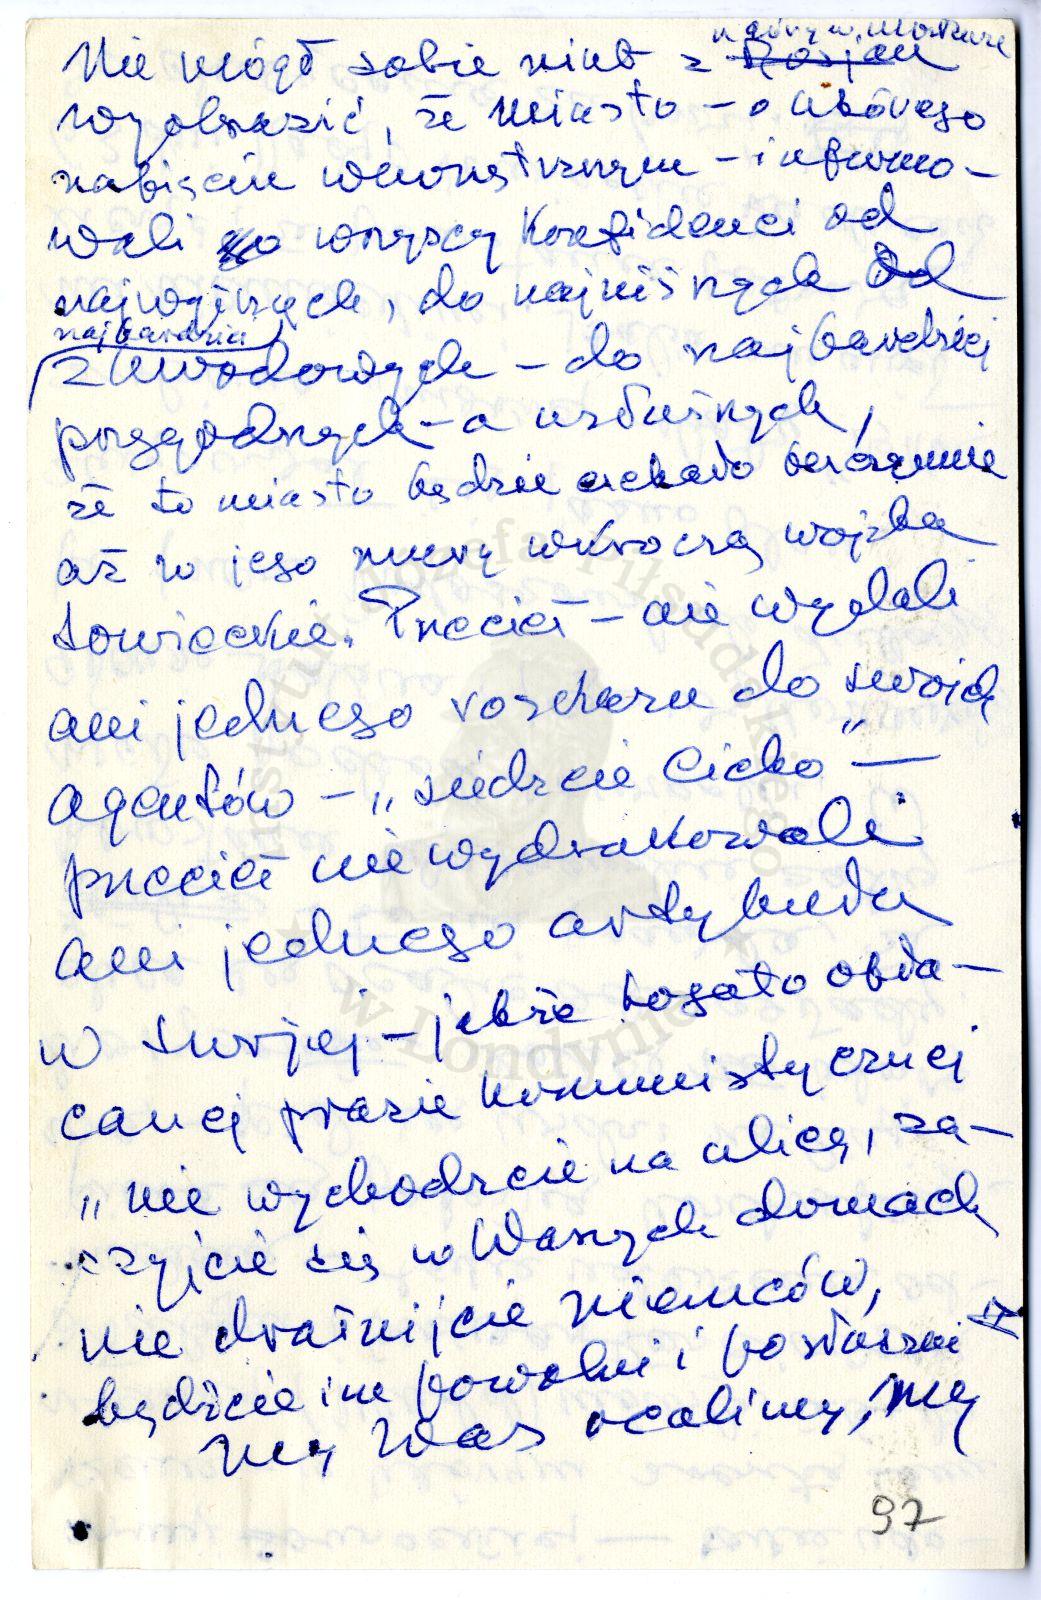 Nie mógł sobie nikt z ~~Rosjan~~
wyobrazić, że miasto – o którego
napięciu wewnętrznym – informo-
wali go wszyscy Konfidenci od
najwyższych, do najniższych od
najbardziej
zawodowych – do najbardziej
przygodnych – a usłużnych,
że to miasto będzie czekało bezczynnie
aż w jego mury wkroczą wojska
sowieckie. Przecież – nie wydali
ani jednego rozkazu do swoich
agentów – „siedzcie cicho" –
przecież nie wydrukowali
ani jednego artykułu
w swojej – jakże bogato obła-
canej prasie kommunistycznej
„nie wychodzcie na ulicę, za-
szyjcie się w Waszych domach
nie drażnijcie niemców,
będzcie im powolni i posłuszni
my Was ocalimy, my
97
Instytut Józefa Piłsudskiego
w Londynie